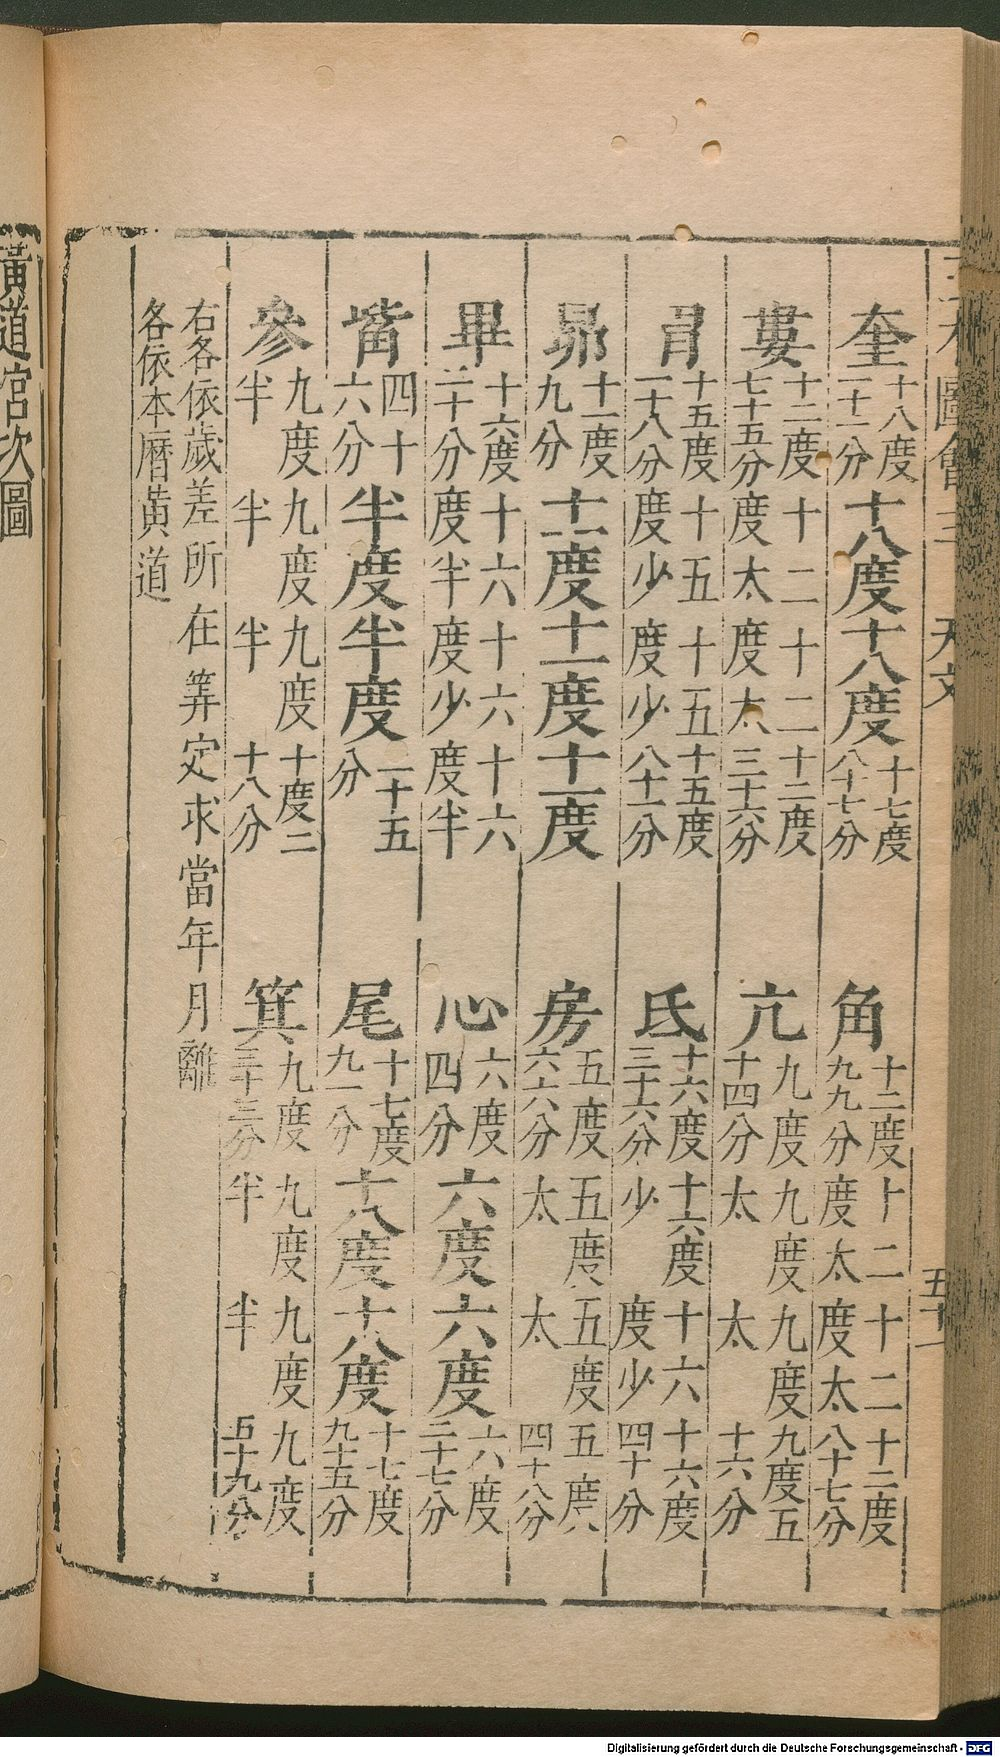 圖會三 天文 五十一
奎 十八度二十一分 十八度 十八度 十七度八十七分
角 十二度九九分 十二度太 十二度太 十二度八十七分
婁 十二度七十五分 十二度太 十二度太 十二度三十六分
亢 九度十四分 九度太 九度太 九度五十六分
胃 十五度二十八分 十五度少 十五度少 十五度八十一分
氐 十六度三十六分 十六度少 十六度少 十六度四十分
昴 十一度九分 十一度 十一度 十一度
房 五度六六分 五度太 五度太 五度四十八分
畢 十六度二十分 十六度半 十六度少 十六度半
心 六度四分 六度 六度 六度二十七分
觜 四十六分 半度 半度 一十五分
尾 十七度九一分 十八度 十八度 十七度九十五分
參 九度半 九度半 九度半 十度二十八分
箕 九度三十三分 九度半 九度半 九度五十九分
右各依歲差所在筭定求當年月離
各依本曆黃道
黃道宮次圖
Digitalisierung gefördert durch die Deutsche Forschungsgemeinschaft - DFG